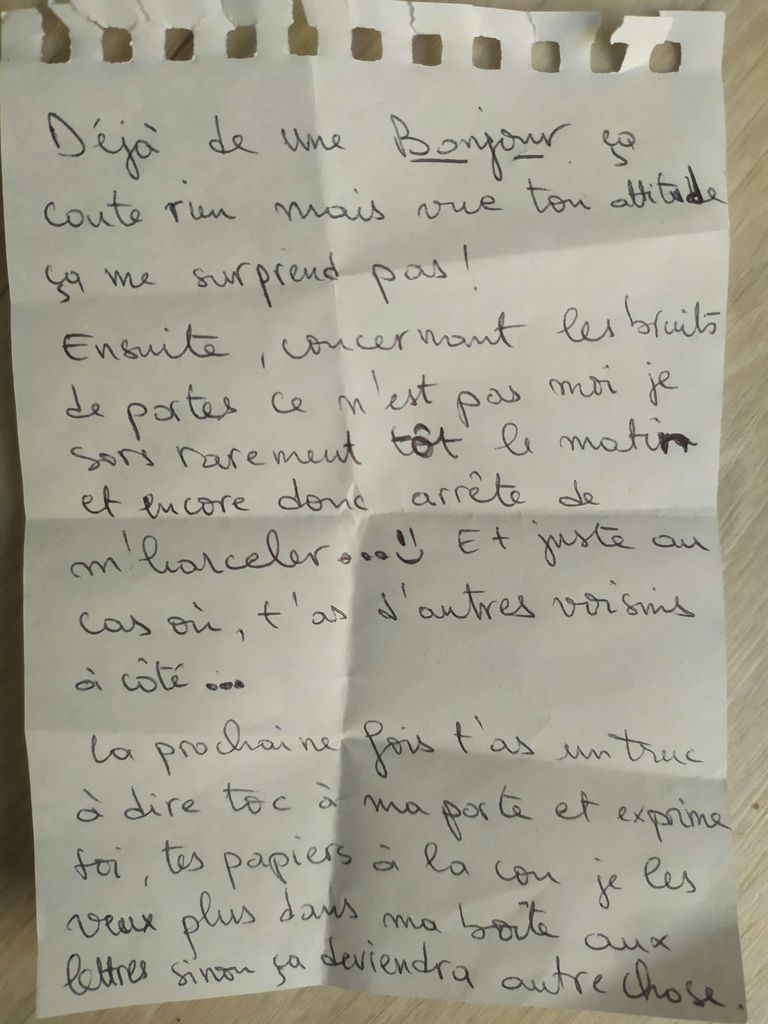 Déjà de une Bonjour ça
coute rien mais vue ton attitude
ça me surprend pas !
Ensuite, concernant les bruits
de portes ce n'est pas moi je
sors rarement tôt le matin
et encore donc arrête de
m'harceler...!! Et juste au
cas où, t'as d'autres voisins
à côté ...
La prochaine fois t'as un truc
à dire toc à ma porte et exprime
toi, tes papiers à la con je les
veux plus dans ma boîte aux
lettres sinon ça deviendra autre chose.